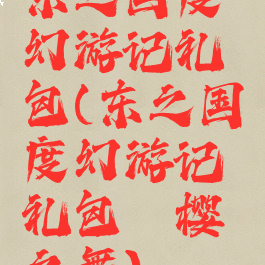 东之国度
幻游记礼
包(东之国
度幻游记
礼包 樱
之舞)